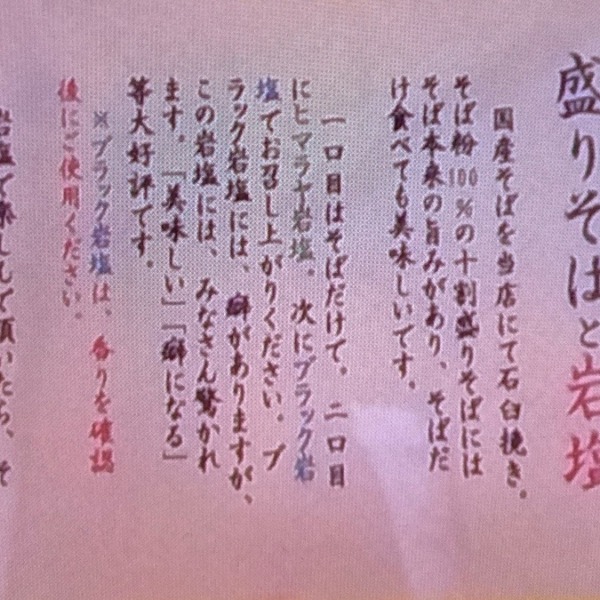 盛りそばと岩塩
国産そばを当店にて石臼挽き。
そば粉100％の十割盛りそばには
そば本来の旨みがあり、そばだ
け食べても美味しいです。
一口目はそばだけで。二口目
にヒマラヤ岩塩。次にブラック岩
塩でお召し上がりください。ブ
ラック岩塩には、癖がありますが、
この岩塩には、みなさん驚かれ
ます。「美味しい」「癖になる」
等大好評です。
※ブラック岩塩は、香りを確認
後にご使用ください。
岩塩で楽しんで頂いたら、そ